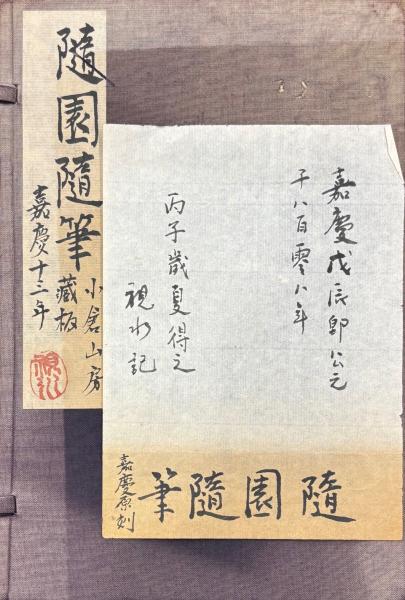 隨園隨筆
小倉山房
藏板
嘉慶十三年
嘉慶戊辰即公元
千八百零八年
丙子歲夏得之
視水記
隨園隨筆
嘉慶原刻